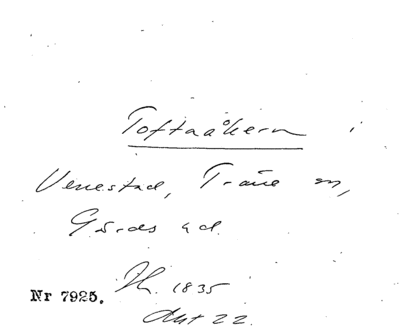 Toftaåkern i
Venestad, Träne sn,
Gärds hd.
Nr 7925. Jh. 1835
Akt 22.